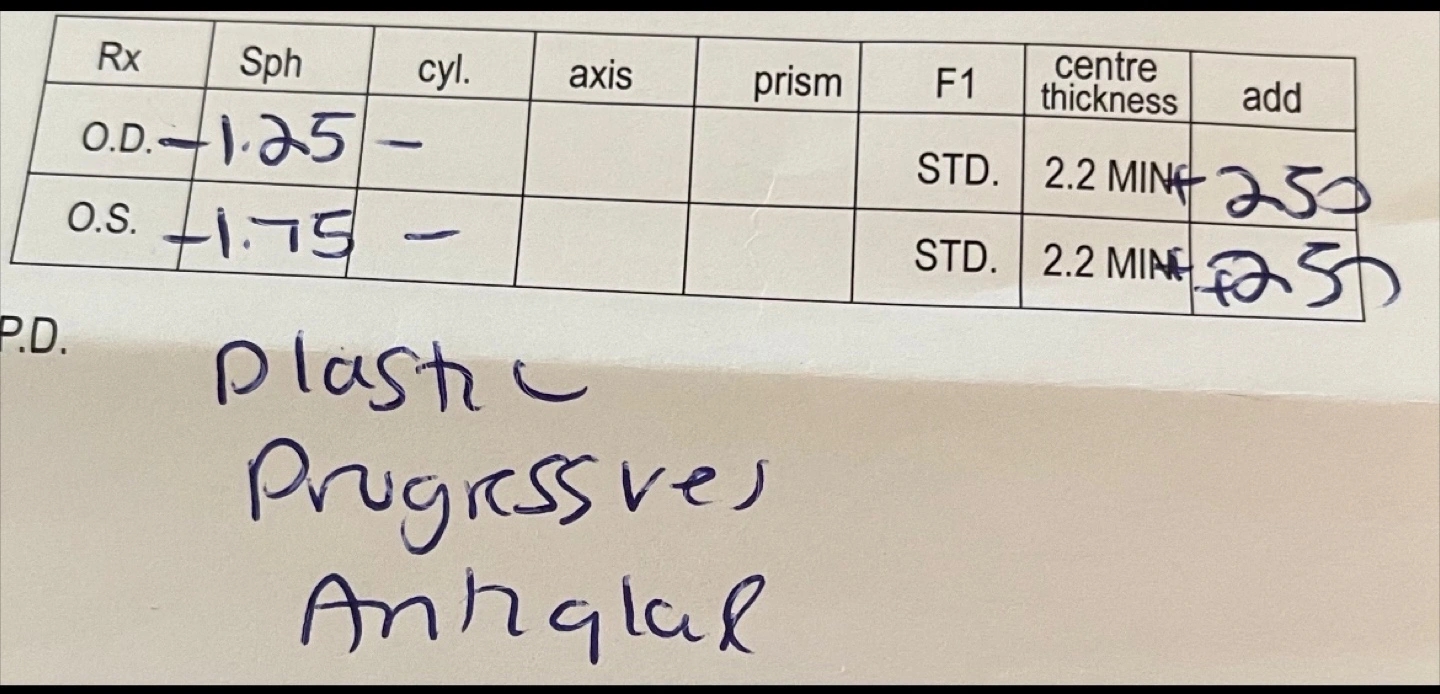 Rx Sph cyl. axis prism F1 centre thickness add
O.D. -1.25 - STD. 2.2 MIN +250
O.S. -1.75 - STD. 2.2 MIN +250
P.D.
Plastic
Progressves
Antiglar